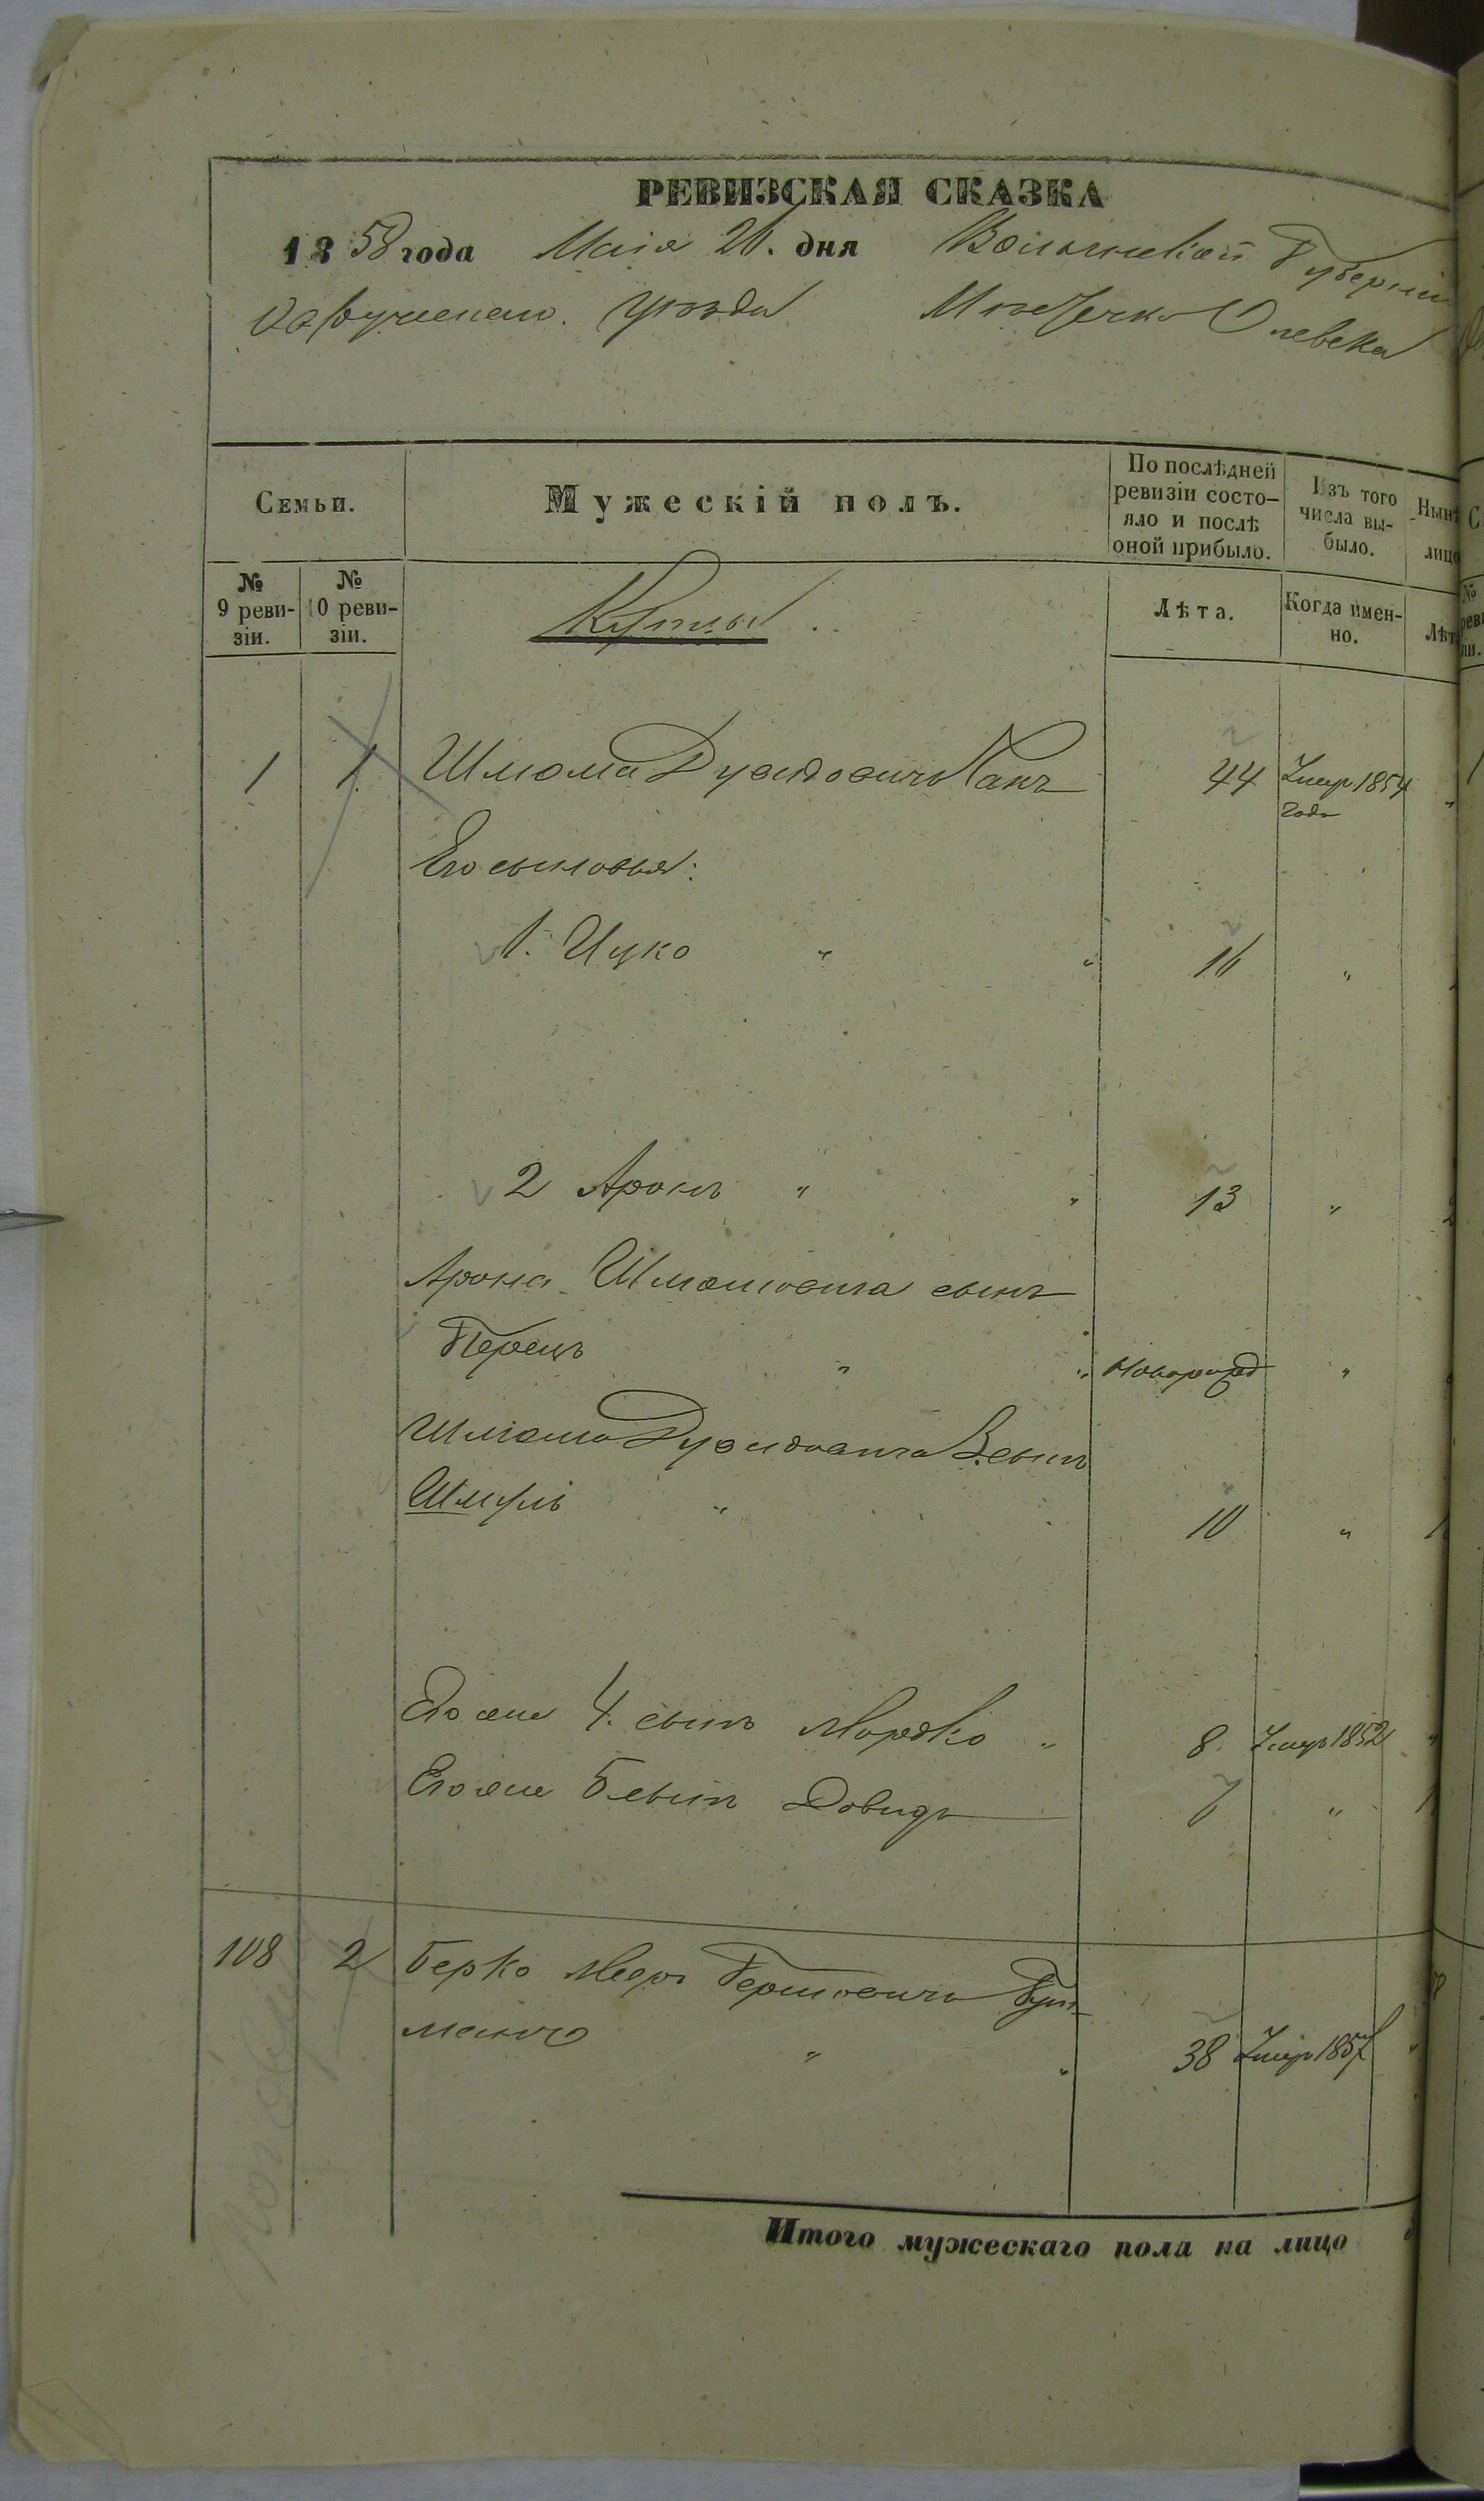 РЕВИЗСКАЯ СКАЗКА
1858 года Маія 26. дня Волынской Губерніи
Овручскаго. Уѣзда Мѣстечко Олевска
Семьи.
Мужескій полъ.
По послѣдней ревизіи состо-
яло и послѣ оной прибыло.
Изъ того числа вы-
было.
Нынѣ
лицо
№ 9 реви-
зіи.
№ 10 реви-
зіи.
Купцы.
Лѣта.
Когда имен-
но.
Лѣт
1 1 Шлома Дувидовичъ Кацъ 44 Умер. 1854
года
Его сыновья:
1. Ицко " " 16 "
2 Аронъ " " 13 "
Арона Шломовича сынъ
Перецъ " " новорожд "
Шлома Дувидовича 3. сынъ
Шмуль " 10 "
Его же 4. сынъ Мордко " 8. Умер 1852
Его же 5 сынъ Довидъ "
108 2 Берко Мееръ Гершовичъ Гут-
манъ " " 38 Умер 1857
Итого мужескаго пола на лицо